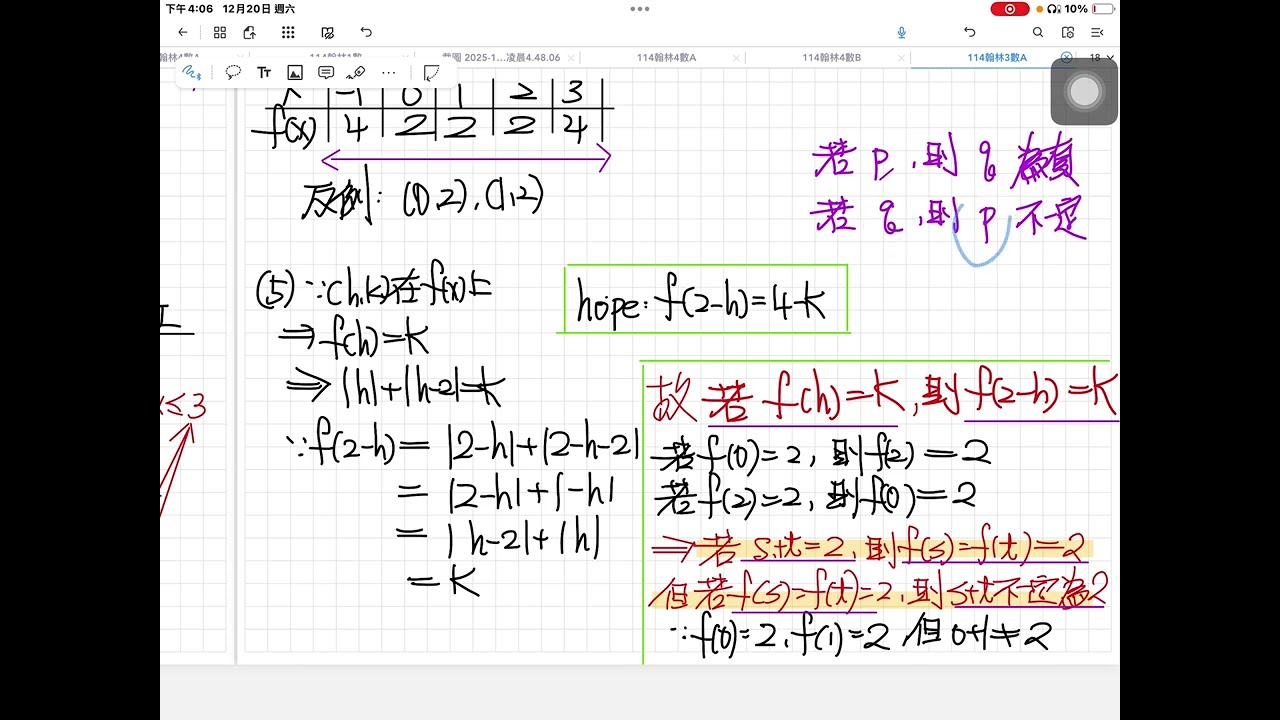 下午4:06 12月20日 週六
10%
114翰林1數A
截圖 2025-1...凌晨4.48.06
114翰林4數A
114翰林4數B
114翰林3數A
18
x -1 0 1 2 3
f(x) 4 2 2 2 4
反例: (0,2),(1,2)
若 p, 則 q 為真
若 q, 則 p 不一定
≤3
(5) ∵(h,k)在f(x)上
hope: f(2-h)=4-k
⇒ f(h)=k
⇒ |h|+|h-2|=k
∵f(2-h)= |2-h|+|2-h-2|
= |2-h|+|-h|
= |h-2|+|h|
= k
故 若 f(h)=k, 則 f(2-h)=k
若 f(0)=2, 則 f(2)=2
若 f(2)=2, 則 f(0)=2
⇒ 若 s+t=2, 則 f(s)=f(t)=2
但 若 f(s)=f(t)=2, 則 s+t不一定為2
∵f(0)=2, f(1)=2, 但 0+1≠2